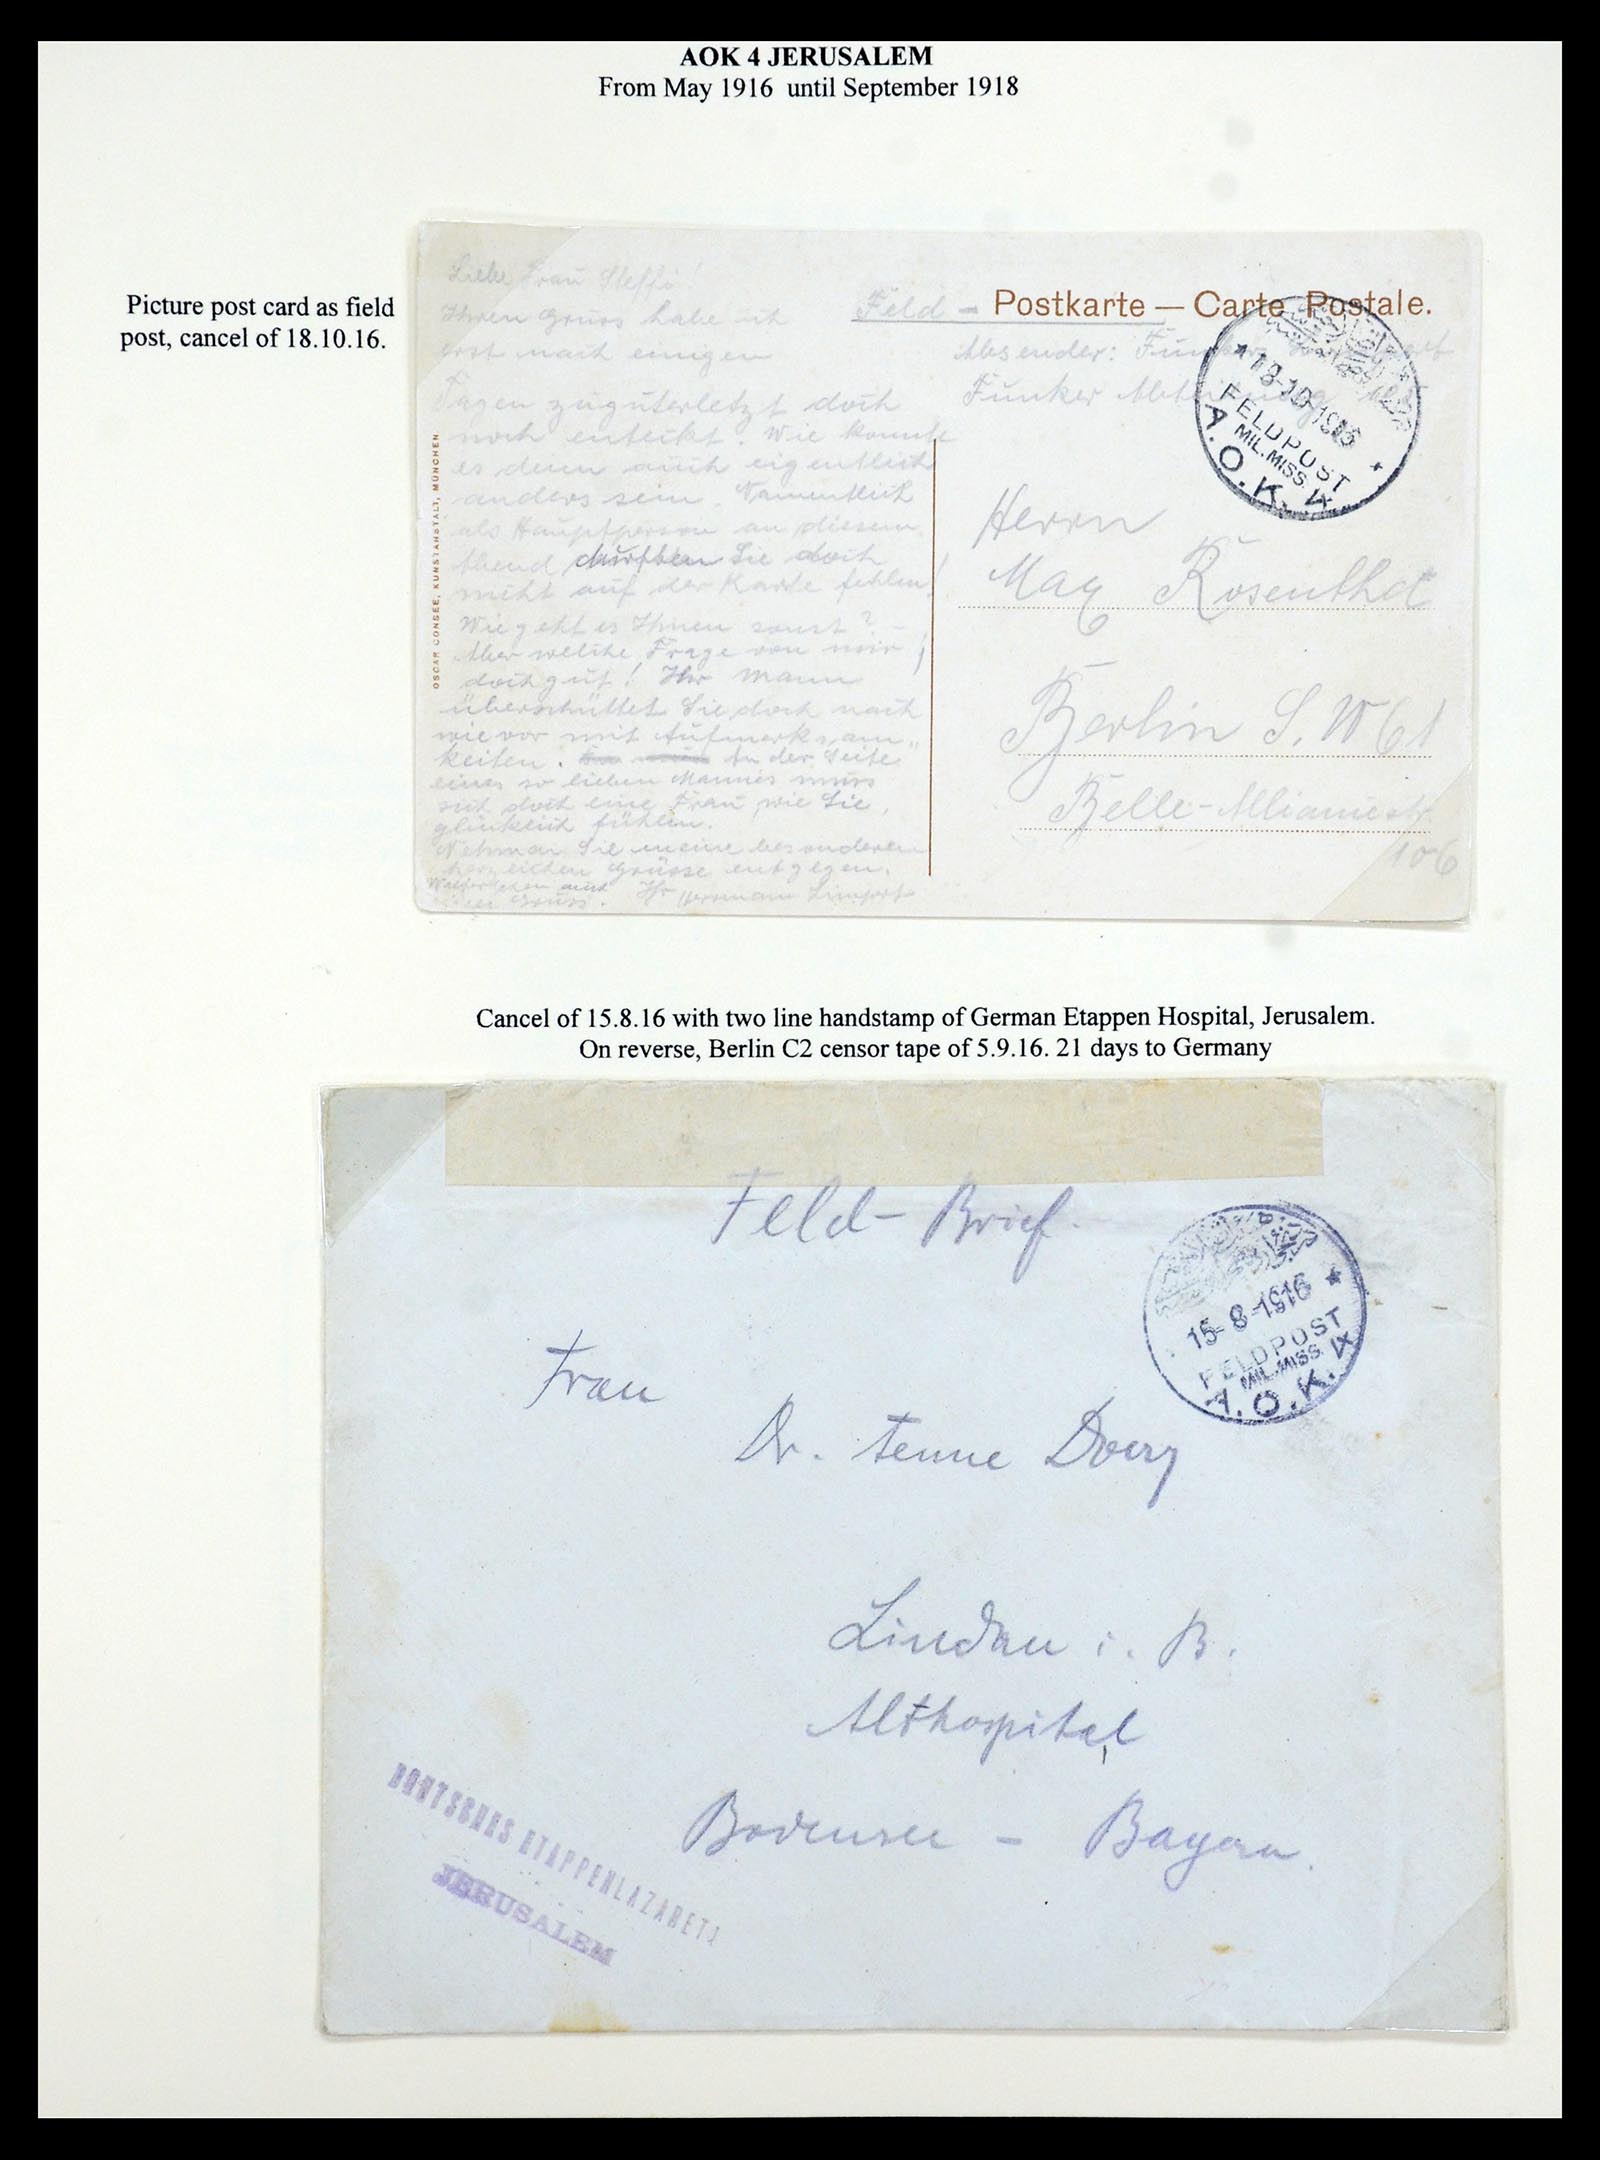 AOK 4 JERUSALEM
From May 1916 until September 1918
Picture post card as field
post, cancel of 18.10.16.
Liebe Frau Steffi!
Ihren Gruss habe ich
erst nach einigen
Tagen zuguterletzt doch
noch entdeckt. Wie konnte
es denn auch eigentlich
anders sein. Namentlich
als Hauptperson an diesem
Abend durften Sie doch
nicht auf der Karte fehlen!
Wie geht es Ihnen sonst? –
Aber welche Frage von mir,
doch gut! Ihr Mann
überschüttet Sie doch nach
wie vor mit Aufmerksam„
keiten. An der Seite
eines so lieben Mannes muss
sich doch eine Frau, wie Sie,
glücklich fühlen.
Nehmen Sie meine besonderen
herzlichen Grüsse entgegen.
Ihr Hermann Limpert
OSCAR CONSEE, KUNSTANSTALT, MÜNCHEN
Feld – Postkarte — Carte Postale.
Absender: Funker
Funker
18-10-1916
FELDPOST
MIL.MISS.
A.O.K. IV
Herrn
Max Rosenthal
Berlin S.W 61
Belle-Alliancestr.
106
Cancel of 15.8.16 with two line handstamp of German Etappen Hospital, Jerusalem.
On reverse, Berlin C2 censor tape of 5.9.16. 21 days to Germany
Feld-Brief.
15-8-1916
FELDPOST
MIL.MISS.
A.O.K. IV
Frau
Dr.
Lindau i. B.
Althospital
Bodensee – Bayern.
DEUTSCHES ETAPPENLAZARETT
JERUSALEM